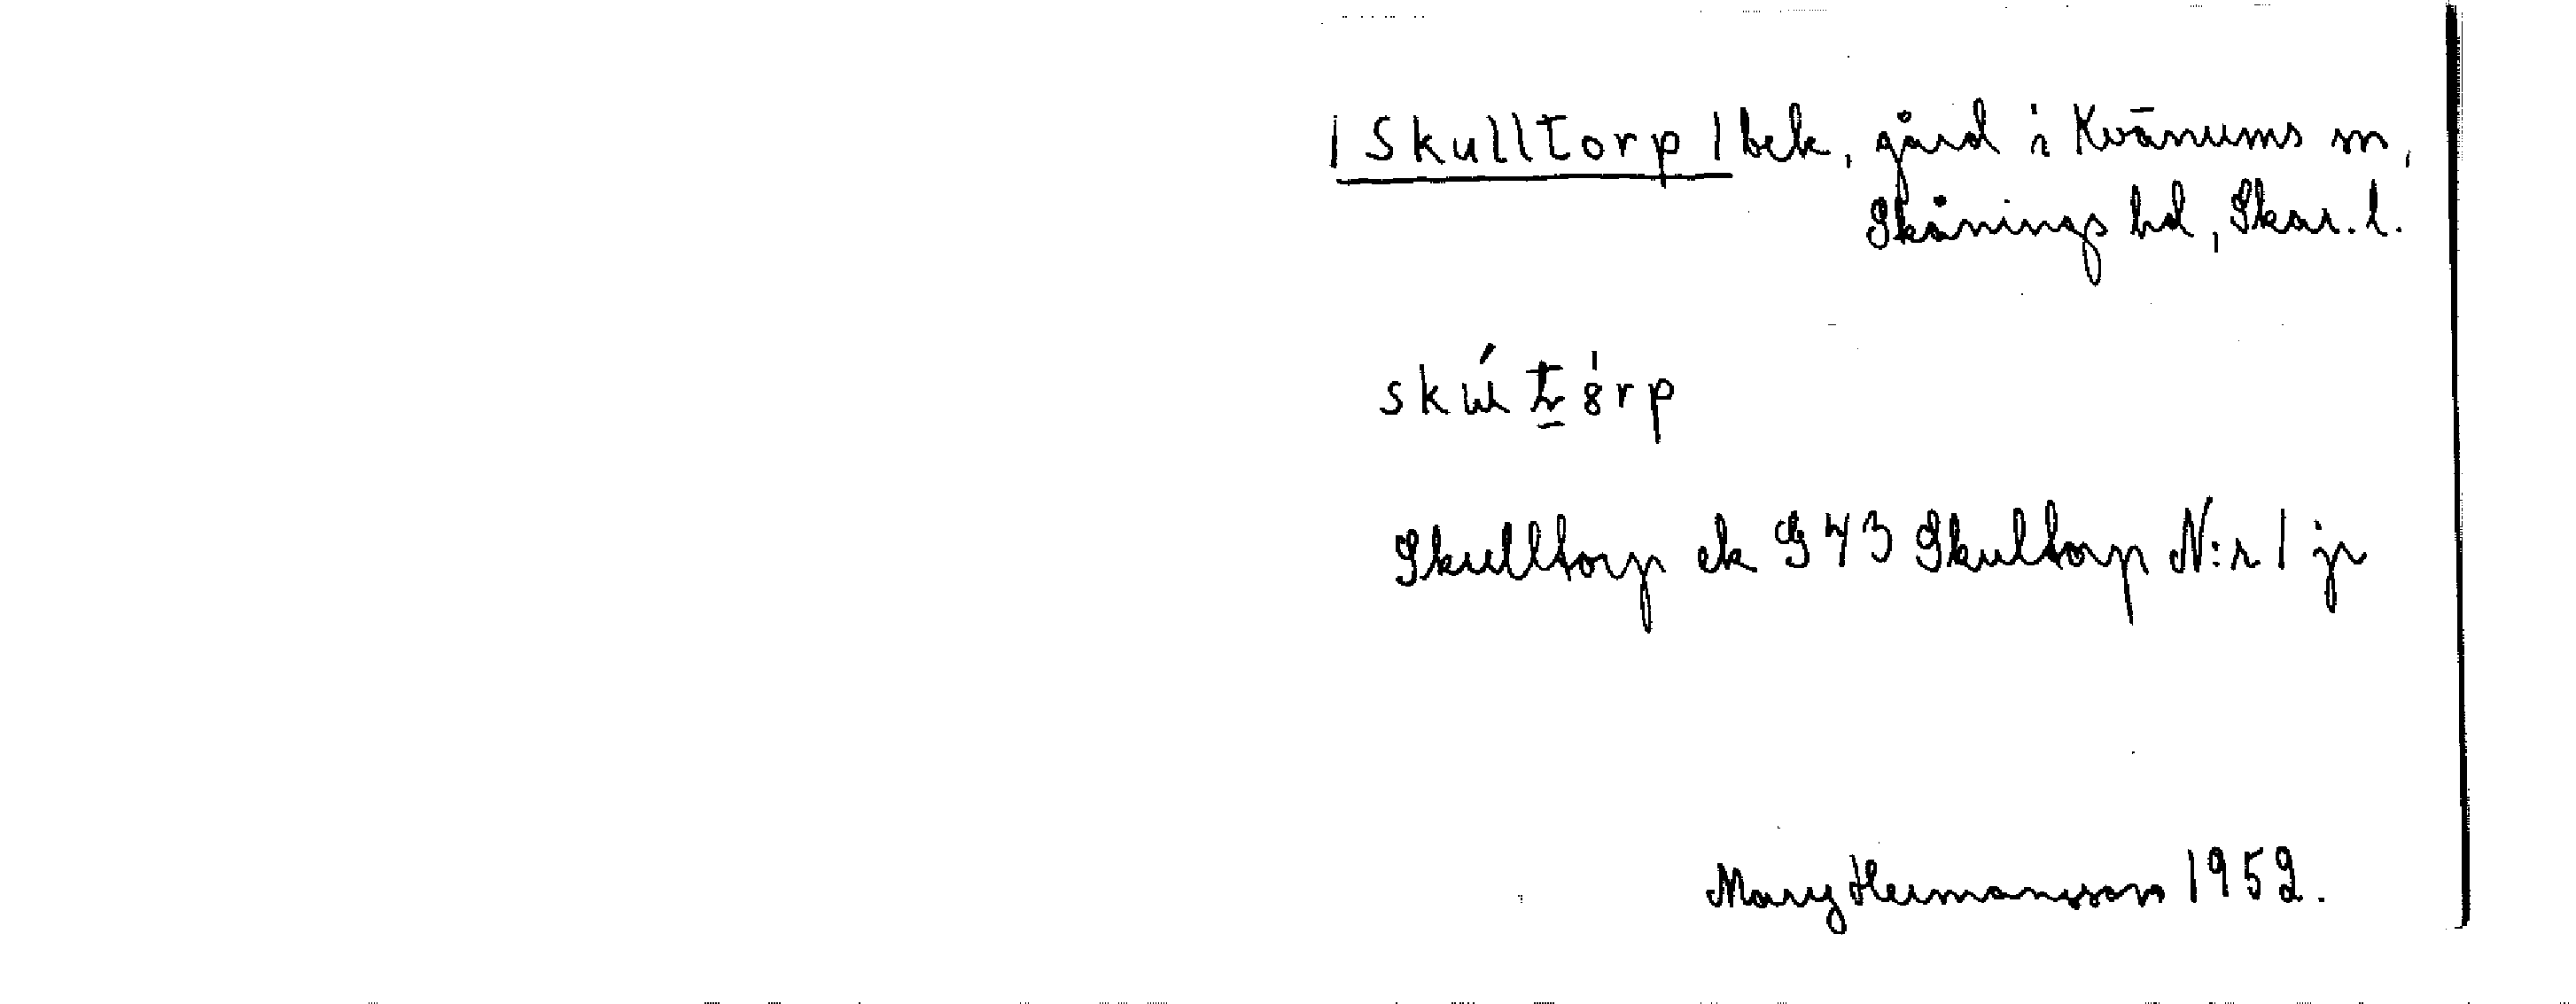 | Skulltorp | bek, gård i Kvänums sn,
Skånings hd, Skar. l.
Skulltorp ek G 43 Skultorp N:r 1 jr
Mary Hermansson 1952.